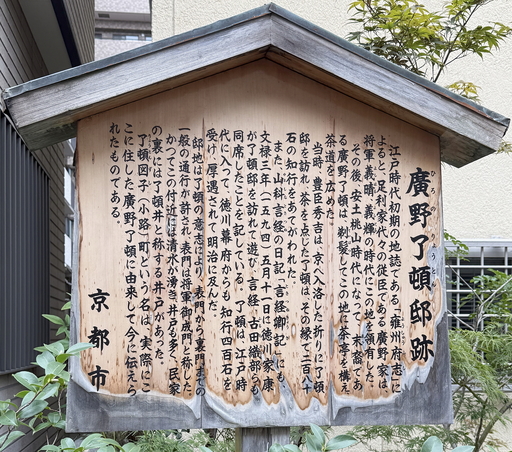 廣野了頓邸跡
江戸時代初期の地誌である「雍州府志」に
よると、足利家代々の従臣である廣野家は
将軍義晴・義輝の時代にこの地を領有した。
その後、安土桃山時代になって、末裔であ
る廣野了頓は、剃髪してこの地に茶亭を構え
茶道を広めた。
当時、豊臣秀吉は、京へ入洛した折りに了頓
邸を訪れ、茶を点じた了頓は、その縁で二百八十
石の知行をあてがわれた。
また、山科言経の日記「言経卿記」にも、
文禄三年(一五九四)五月十日に徳川家康
が了頓邸を訪れて遊び、言経、古田織部らも
同席したことを記している。了頓は、江戸時
代に入って、徳川幕府からも知行四百石を
受け、厚遇されて明治に及んだ。
邸地は了頓の意志により、表門から裏門までの
一般の通行が許され、表門は将軍御成門と称した。
かつてこの付近には清水が湧き、井戸も多く、民家
の裏には了頓井と称する井戸があった。
了頓図子(小路)町という名は、実際にこ
こに住した廣野了頓に由来して今に伝えら
れたものである。
京都市